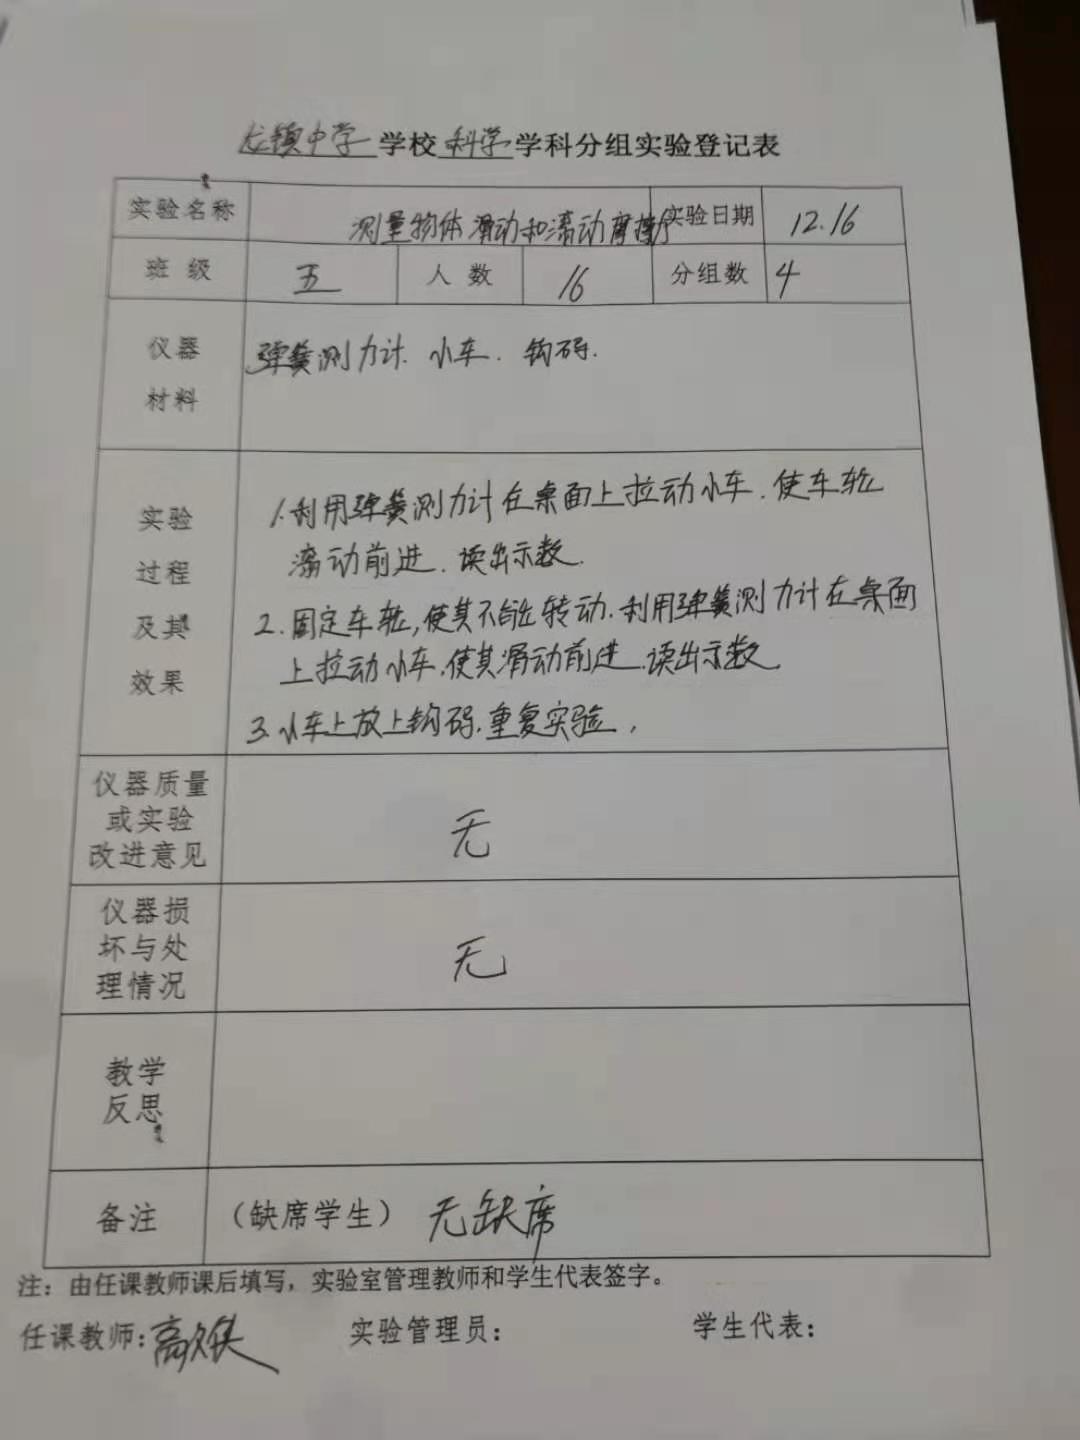 龙镇中学 学校 科学 学科分组实验登记表
实验名称 测量物体滑动和滚动摩擦力 实验日期 12.16
班 级 五 人 数 16 分组数 4
仪器
材料
弹簧测力计. 小车. 钩码.
实验
过程
及其
效果
1.利用弹簧测力计在桌面上拉动小车.使车轮
滚动前进.读出示数.
2.固定车轮,使其不能转动.利用弹簧测力计在桌面
上拉动小车.使其滑动前进.读出示数.
3.小车上放上钩码.重复实验.
仪器质量
或实验
改进意见
无
仪器损
坏与处
理情况
无
教学
反思
备注 （缺席学生） 无缺席
注：由任课教师课后填写，实验室管理教师和学生代表签字。
任课教师: 实验管理员: 学生代表: